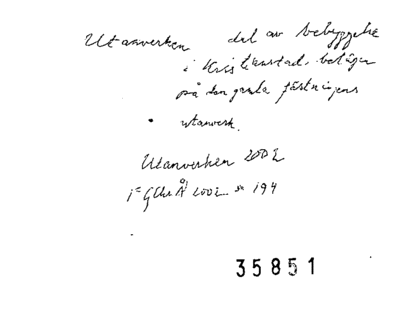 Utanverken del av bebyggelse
i Kristianstad, belägen
på den gamla fästningens
utanverk.
Utanverken 2002
i GChr Å 2002 s. 194
35851